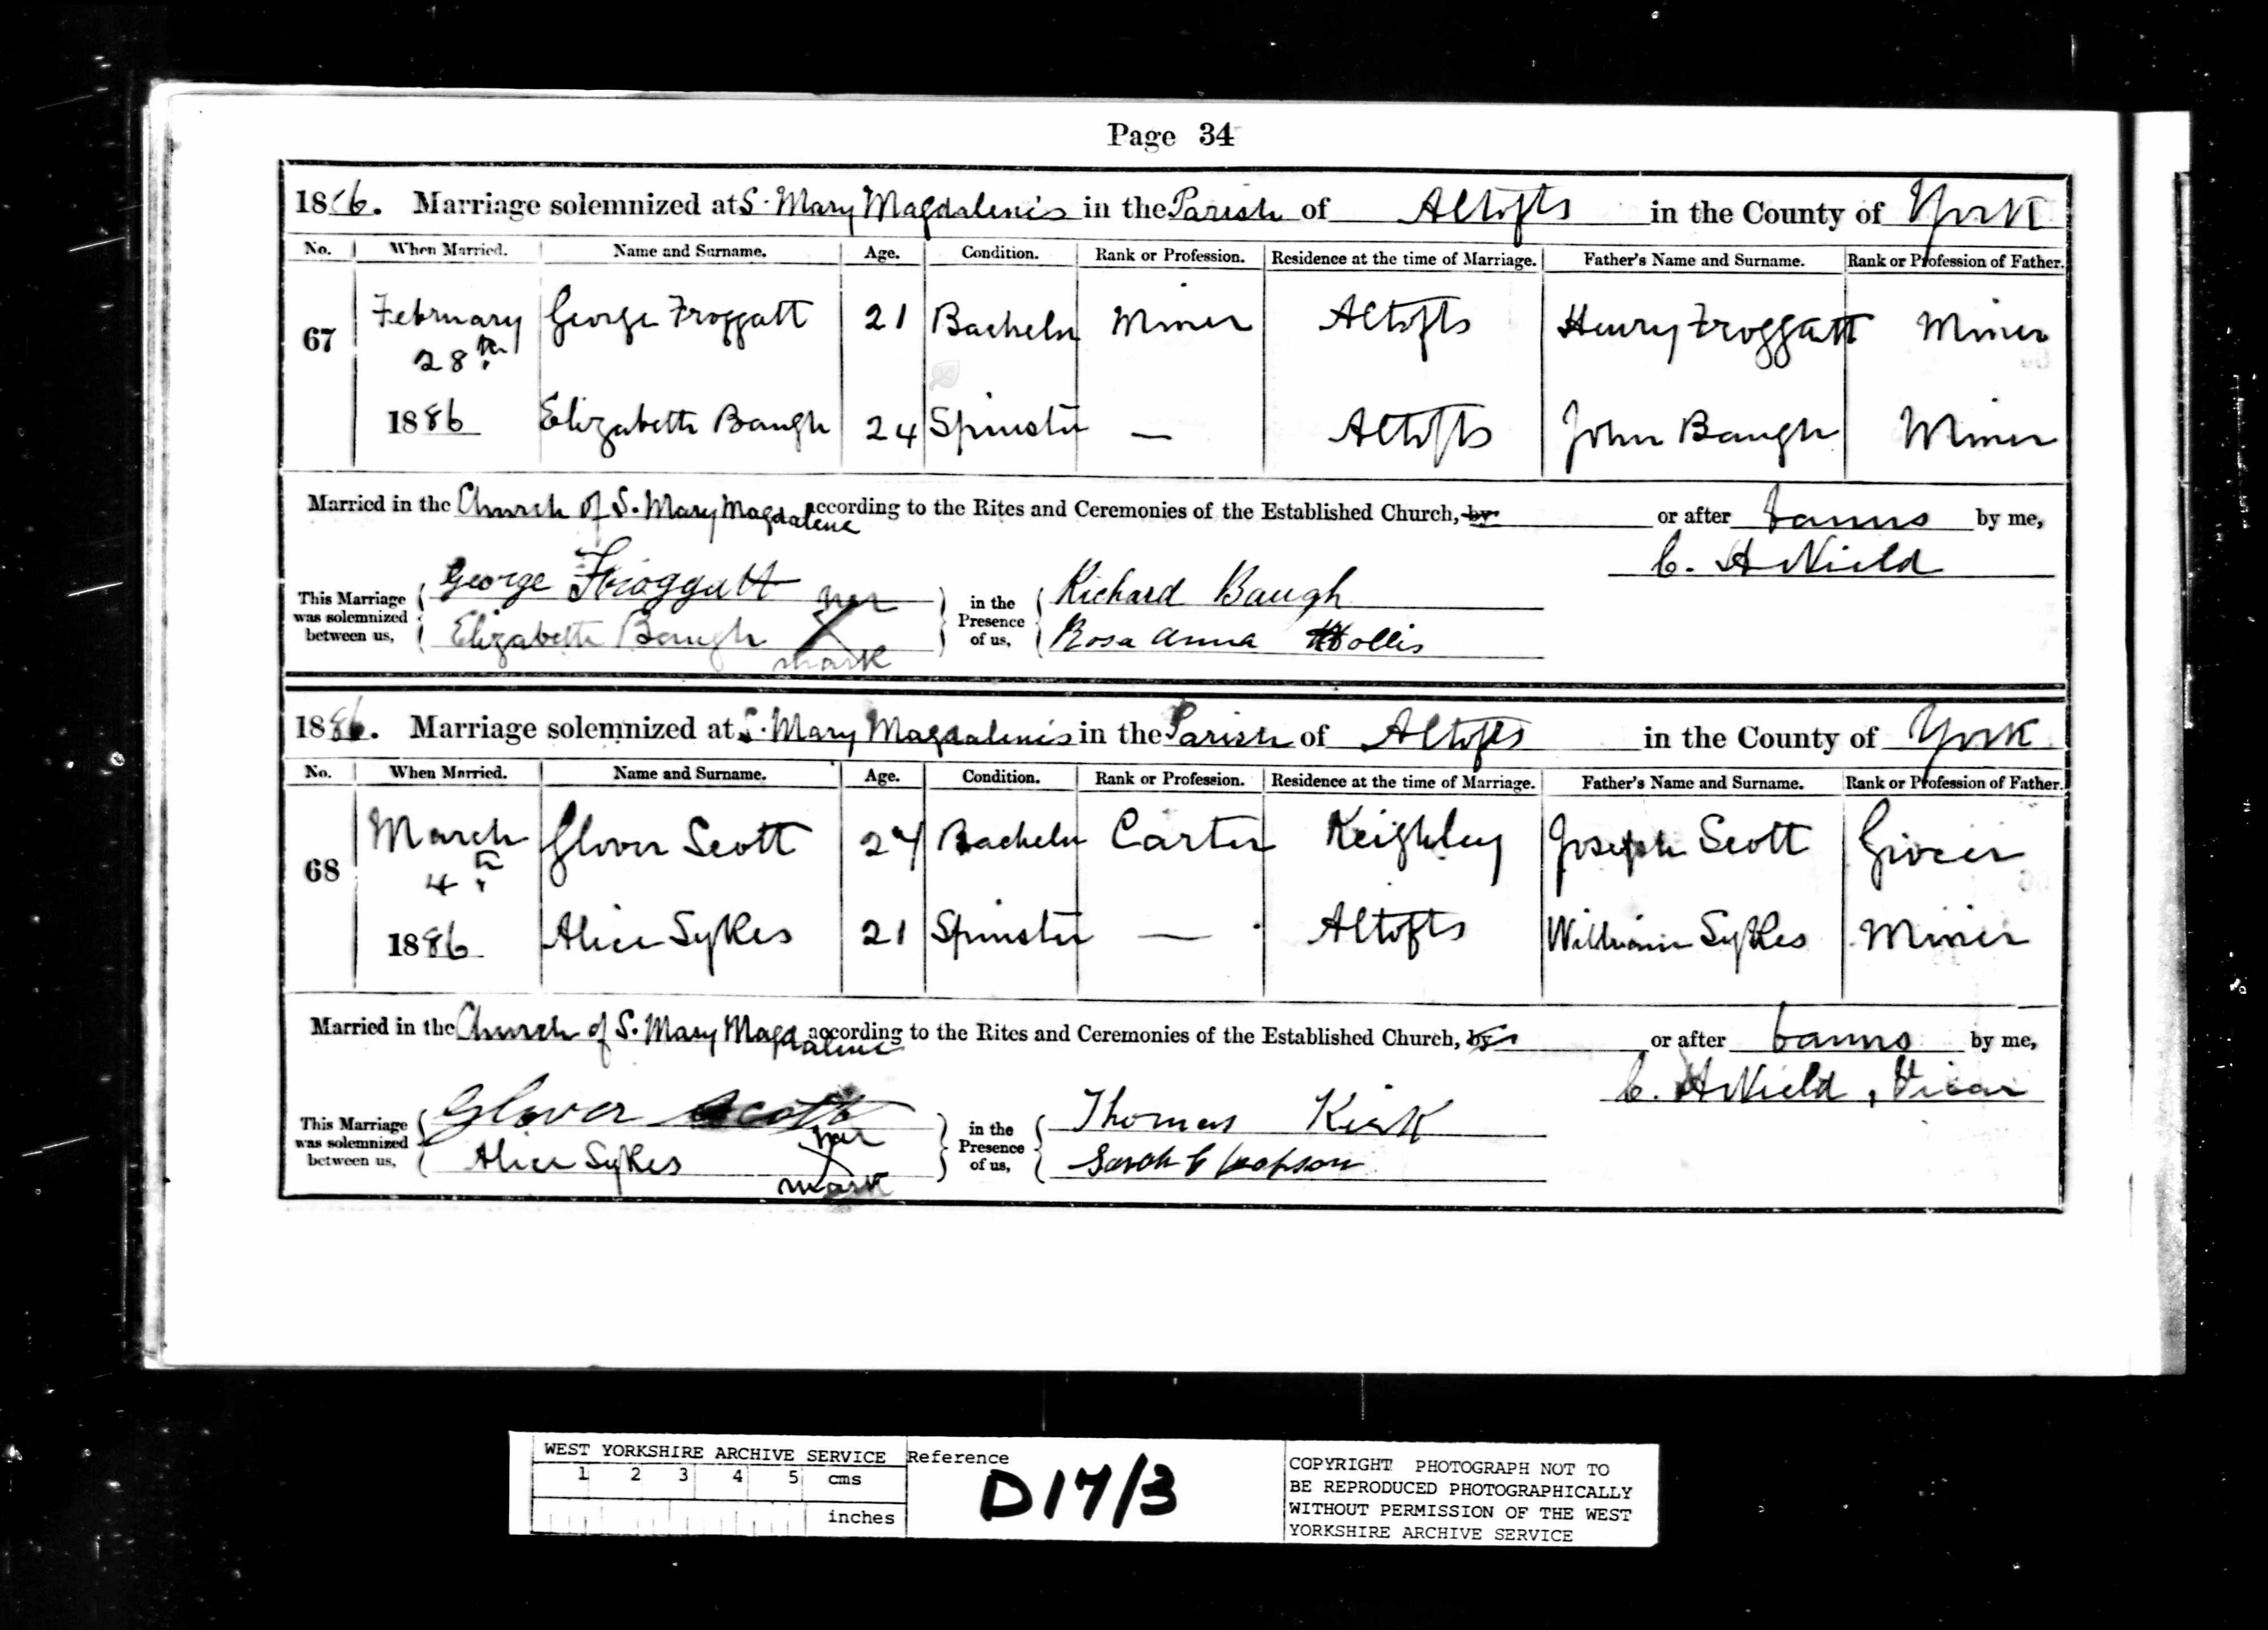 Page 34
1886. Marriage solemnized at S. Mary Magdalene's in the Parish of Altofts in the County of York
No. When Married. Name and Surname. Age. Condition. Rank or Profession. Residence at the time of Marriage. Father's Name and Surname. Rank or Profession of Father.
67 February 28th George Froggatt 21 Bachelor Miner Altofts Henry Froggatt Miner
1886 Elizabeth Baugh 24 Spinster — Altofts John Baugh Miner
Married in the Church of S. Mary Magdalene according to the Rites and Ceremonies of the Established Church, by or after banns by me,
C. H Nield
This Marriage was solemnized between us, George Froggatt in the Presence of us, Richard Baugh
Elizabeth Baugh her X mark Rosa Anna Hollis
1886. Marriage solemnized at S. Mary Magdalene's in the Parish of Altofts in the County of York
No. When Married. Name and Surname. Age. Condition. Rank or Profession. Residence at the time of Marriage. Father's Name and Surname. Rank or Profession of Father.
68 March 4th Glover Scott 24 Bachelor Carter Keighley Joseph Scott Grocer
1886 Alice Sykes 21 Spinster — Altofts William Sykes Miner
Married in the Church of S. Mary Magdalene according to the Rites and Ceremonies of the Established Church, by or after banns by me,
C. H Nield, Vicar
This Marriage was solemnized between us, Glover Scott in the Presence of us, Thomas Kirk
Alice Sykes her X mark Sarah
WEST YORKSHIRE ARCHIVE SERVICE Reference
1 2 3 4 5 cms
inches
D17/3
COPYRIGHT PHOTOGRAPH NOT TO
BE REPRODUCED PHOTOGRAPHICALLY
WITHOUT PERMISSION OF THE WEST
YORKSHIRE ARCHIVE SERVICE